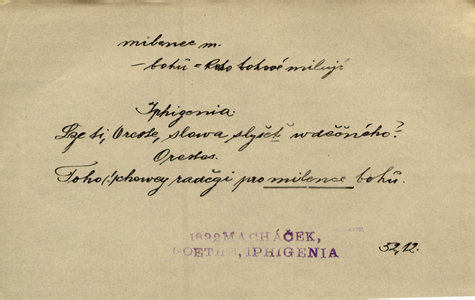 milenec m.
— bohů = koho bohové milují
Iphigenia:
Lze ti, Oreste, slowa slyšet wděčného?
Orestes.
Toho (!) chowey raděgi pro milence bohů.
1822 MACHÁČEK,
GOETHE, IPHIGENIA
52,12.